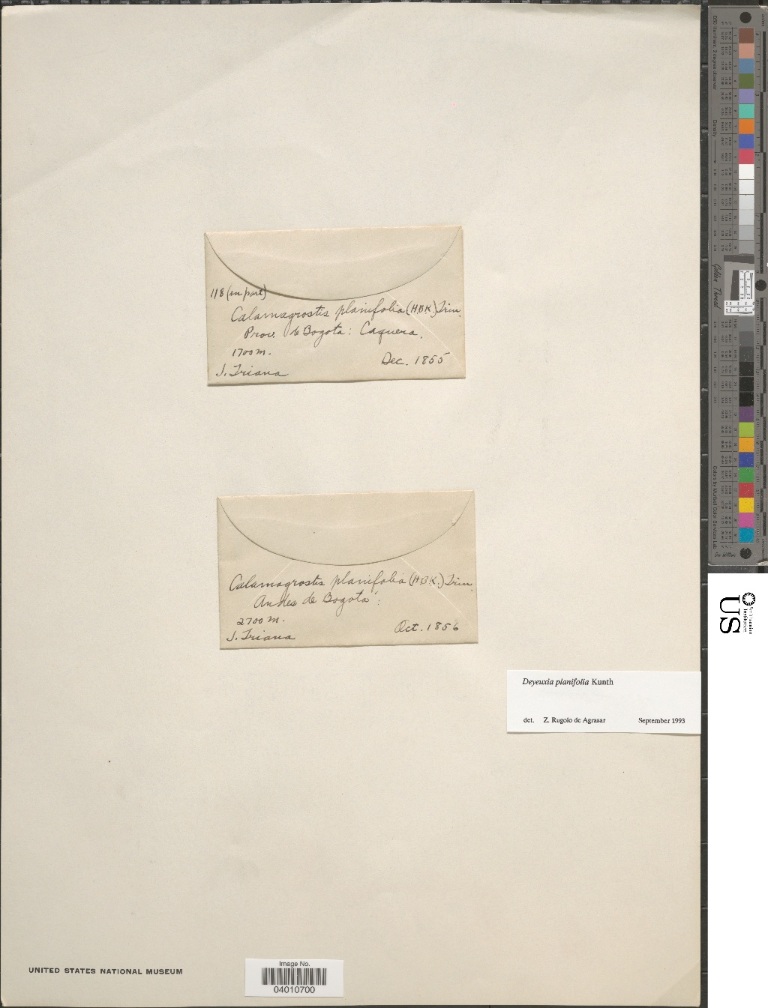 118 (in part)
Calamagrostis planifolia (HBK.) Trin.
Prov. de Bogota: Caquera.
1700 m.
Dec. 1855
J. Triana
Calamagrostis planifolia (HBK.) Trin.
Andes de Bogotá:
2700 m.
Oct. 1856
J. Triana
Deyeuxia planifolia Kunth
det. Z. Rugolo de Agrasar September 1993
UNITED STATES NATIONAL MUSEUM
Image No.
04010700
US